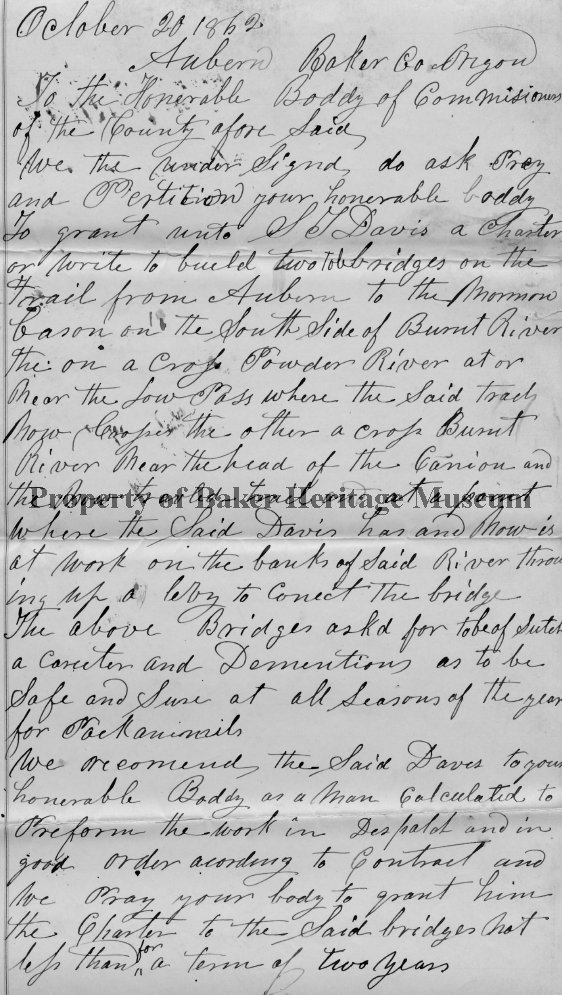 October 20, 1862
Aubern Baker Co Oregon
To the Honerable Boddy of Commisioners
of the County afore Said
We the under Signd do ask Prey
and Pertition your honerable boddy
To grant unto S T Davis a Charter
or write to build two toll bridges on the
Trail from Aubern to the Mormon
Bason on the South Side of Burnt River
the on a Cross Powder River at or
Near the Low Pass where the Said trach
Now Crosses the other a cross Burnt
River Near the head of the Canion and
the at a point
Property of Baker Heritage Museum
where the Said Davis has and Now is
at work on the banks of Said River throw
ing up a leby to Conect the bridge
The above Bridges askd for to be of Sutch
a Careter and Dementions as to be
Safe and Sure at all Seasons of the year
for Packanimils
We recomend the Said Daves to your
honerable Boddy as a Man Calculated to
Preform the work in Despatct and in
good order acording to Contract and
We Pray your body to grant him
the Charter to the Said bridges not
less than for a term of two years